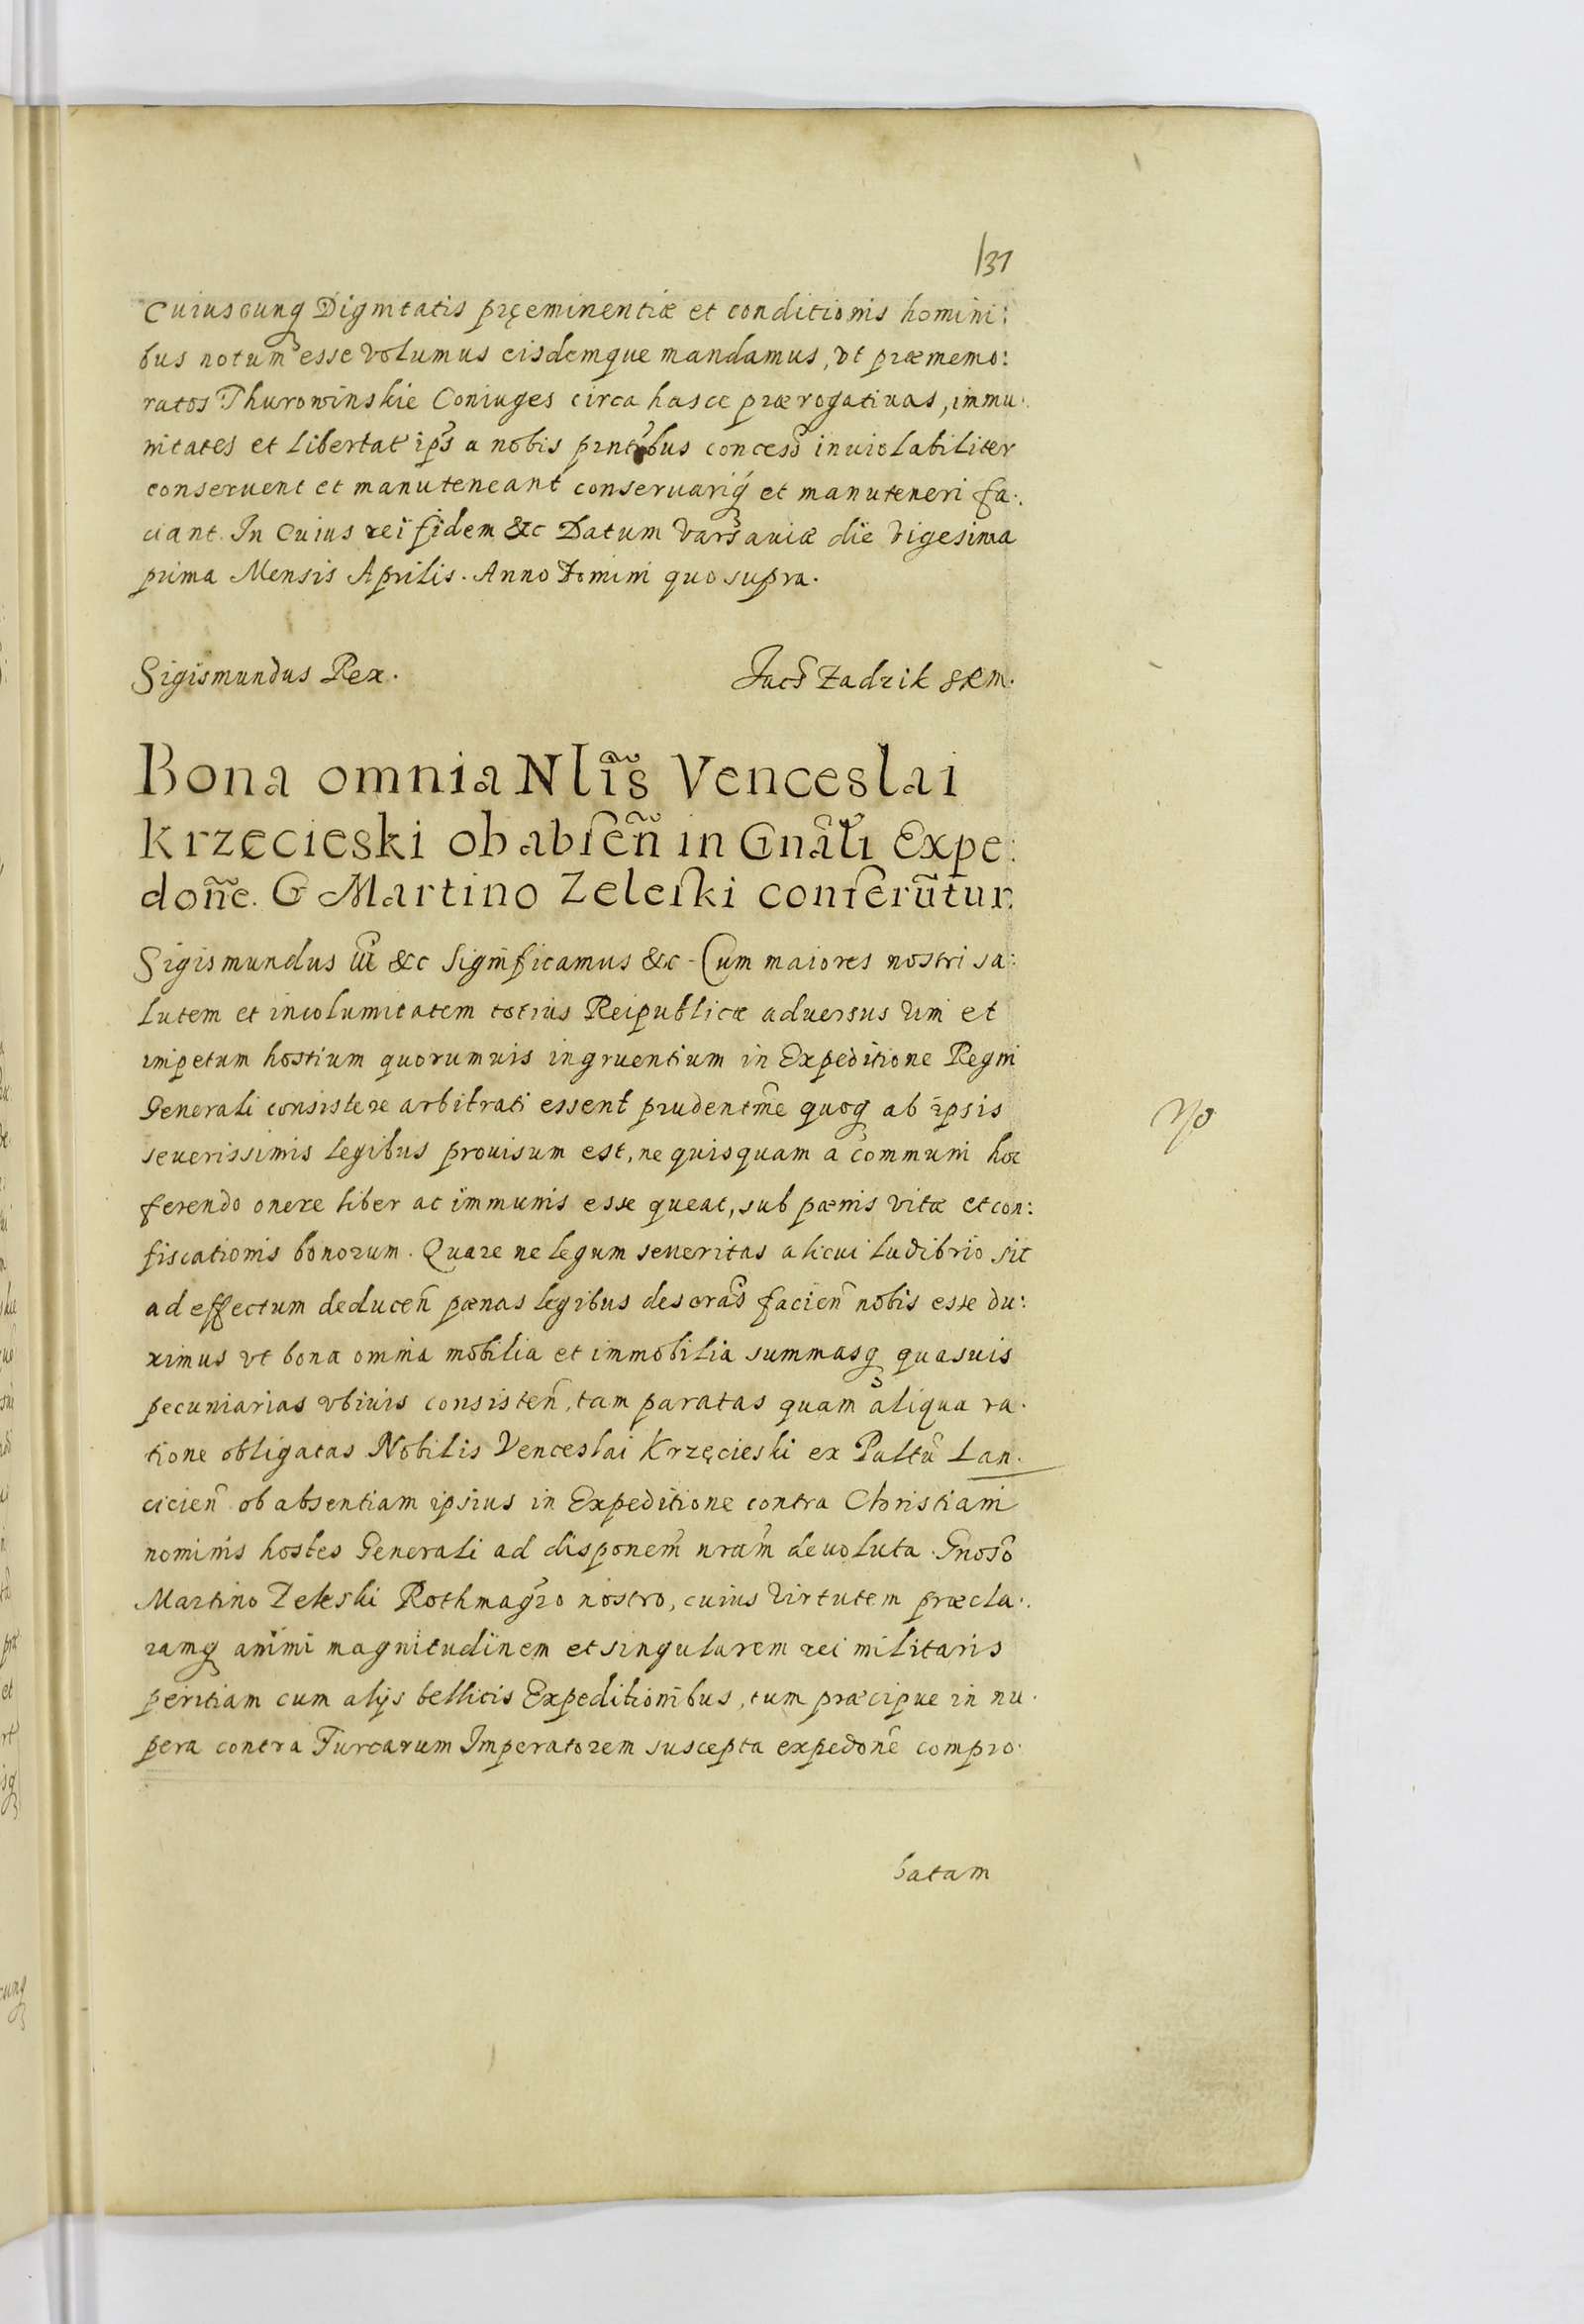 131
Cuiuscunq Dignitatis pręeminentiæ et conditionis homini:
bus notum esse volumus eisdemque mandamus, vt præmemo:
ratos Thurowinskie Coniuges circa hasce prærogatiuas, immu:
nitates et libertat ips a nobis pntibus concess inuiolabiliter
conseruent et manuteneant conseruariq et manuteneri fa:
ciant. In Cuius rei fidem &c Datum Varsauiæ die Vigesima
prima Mensis Aprilis. Anno Domini quo supra.
Sigismundus Rex.
Jacs Zadzik SRM.
Bona omnia Nlis Venceslai
Krzęcieski ob absen̄ in Gnāli Expe:
don̄e. G Martino Zeleski conferūtur.
Sigismundus III &c Significamus &c - Cum maiores nostri sa:
lutem et incolumitatem totius Reipublicæ aduersus vim et
impetum hostium quorumuis ingruentium in Expeditione Regni
Generali consistere arbitrati essent prudentme quoq ab ipsis
seuerissimis legibus prouisum est, ne quisquam a communi hoc
ferendo onere liber ac immunis esse queat, sub pœnis vitæ et con:
fiscationis bonorum. Quare ne legum seueritas alicui ludibrio sit
ad effectum deducen̄ pœnas legibus descras facien̄ nobis esse du:
ximus vt bona omnia mobilia et immobilia summasq quasuis
pecuniarias vbiuis consisten̄, tam paratas quam aliqua ra:
tione obligatas Nobilis Venceslai Krzęcieski ex Paltu Lan:
cicien̄ ob absentiam ipsius in Expeditione contra Christiani
nominis hostes Generali ad disponem nram deuoluta. Gnoso
Martino Zeleski Rothmagro nostro, cuius virtutem præcla:
ramq animi magnitudinem et singularem rei militaris
peritiam cum alijs bellicis Expeditionibus, tum præcipue in nu:
pera contra Turcarum Imperatorem suscepta expedone compro:
No
batam